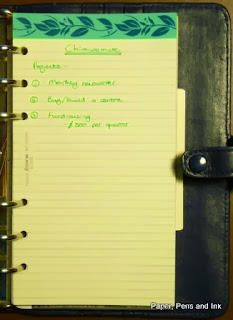 Projects:-
① Monthly newsletter
② Buy/build a centre
③ Fundraising
per quarter
Paper, Pens and Ink